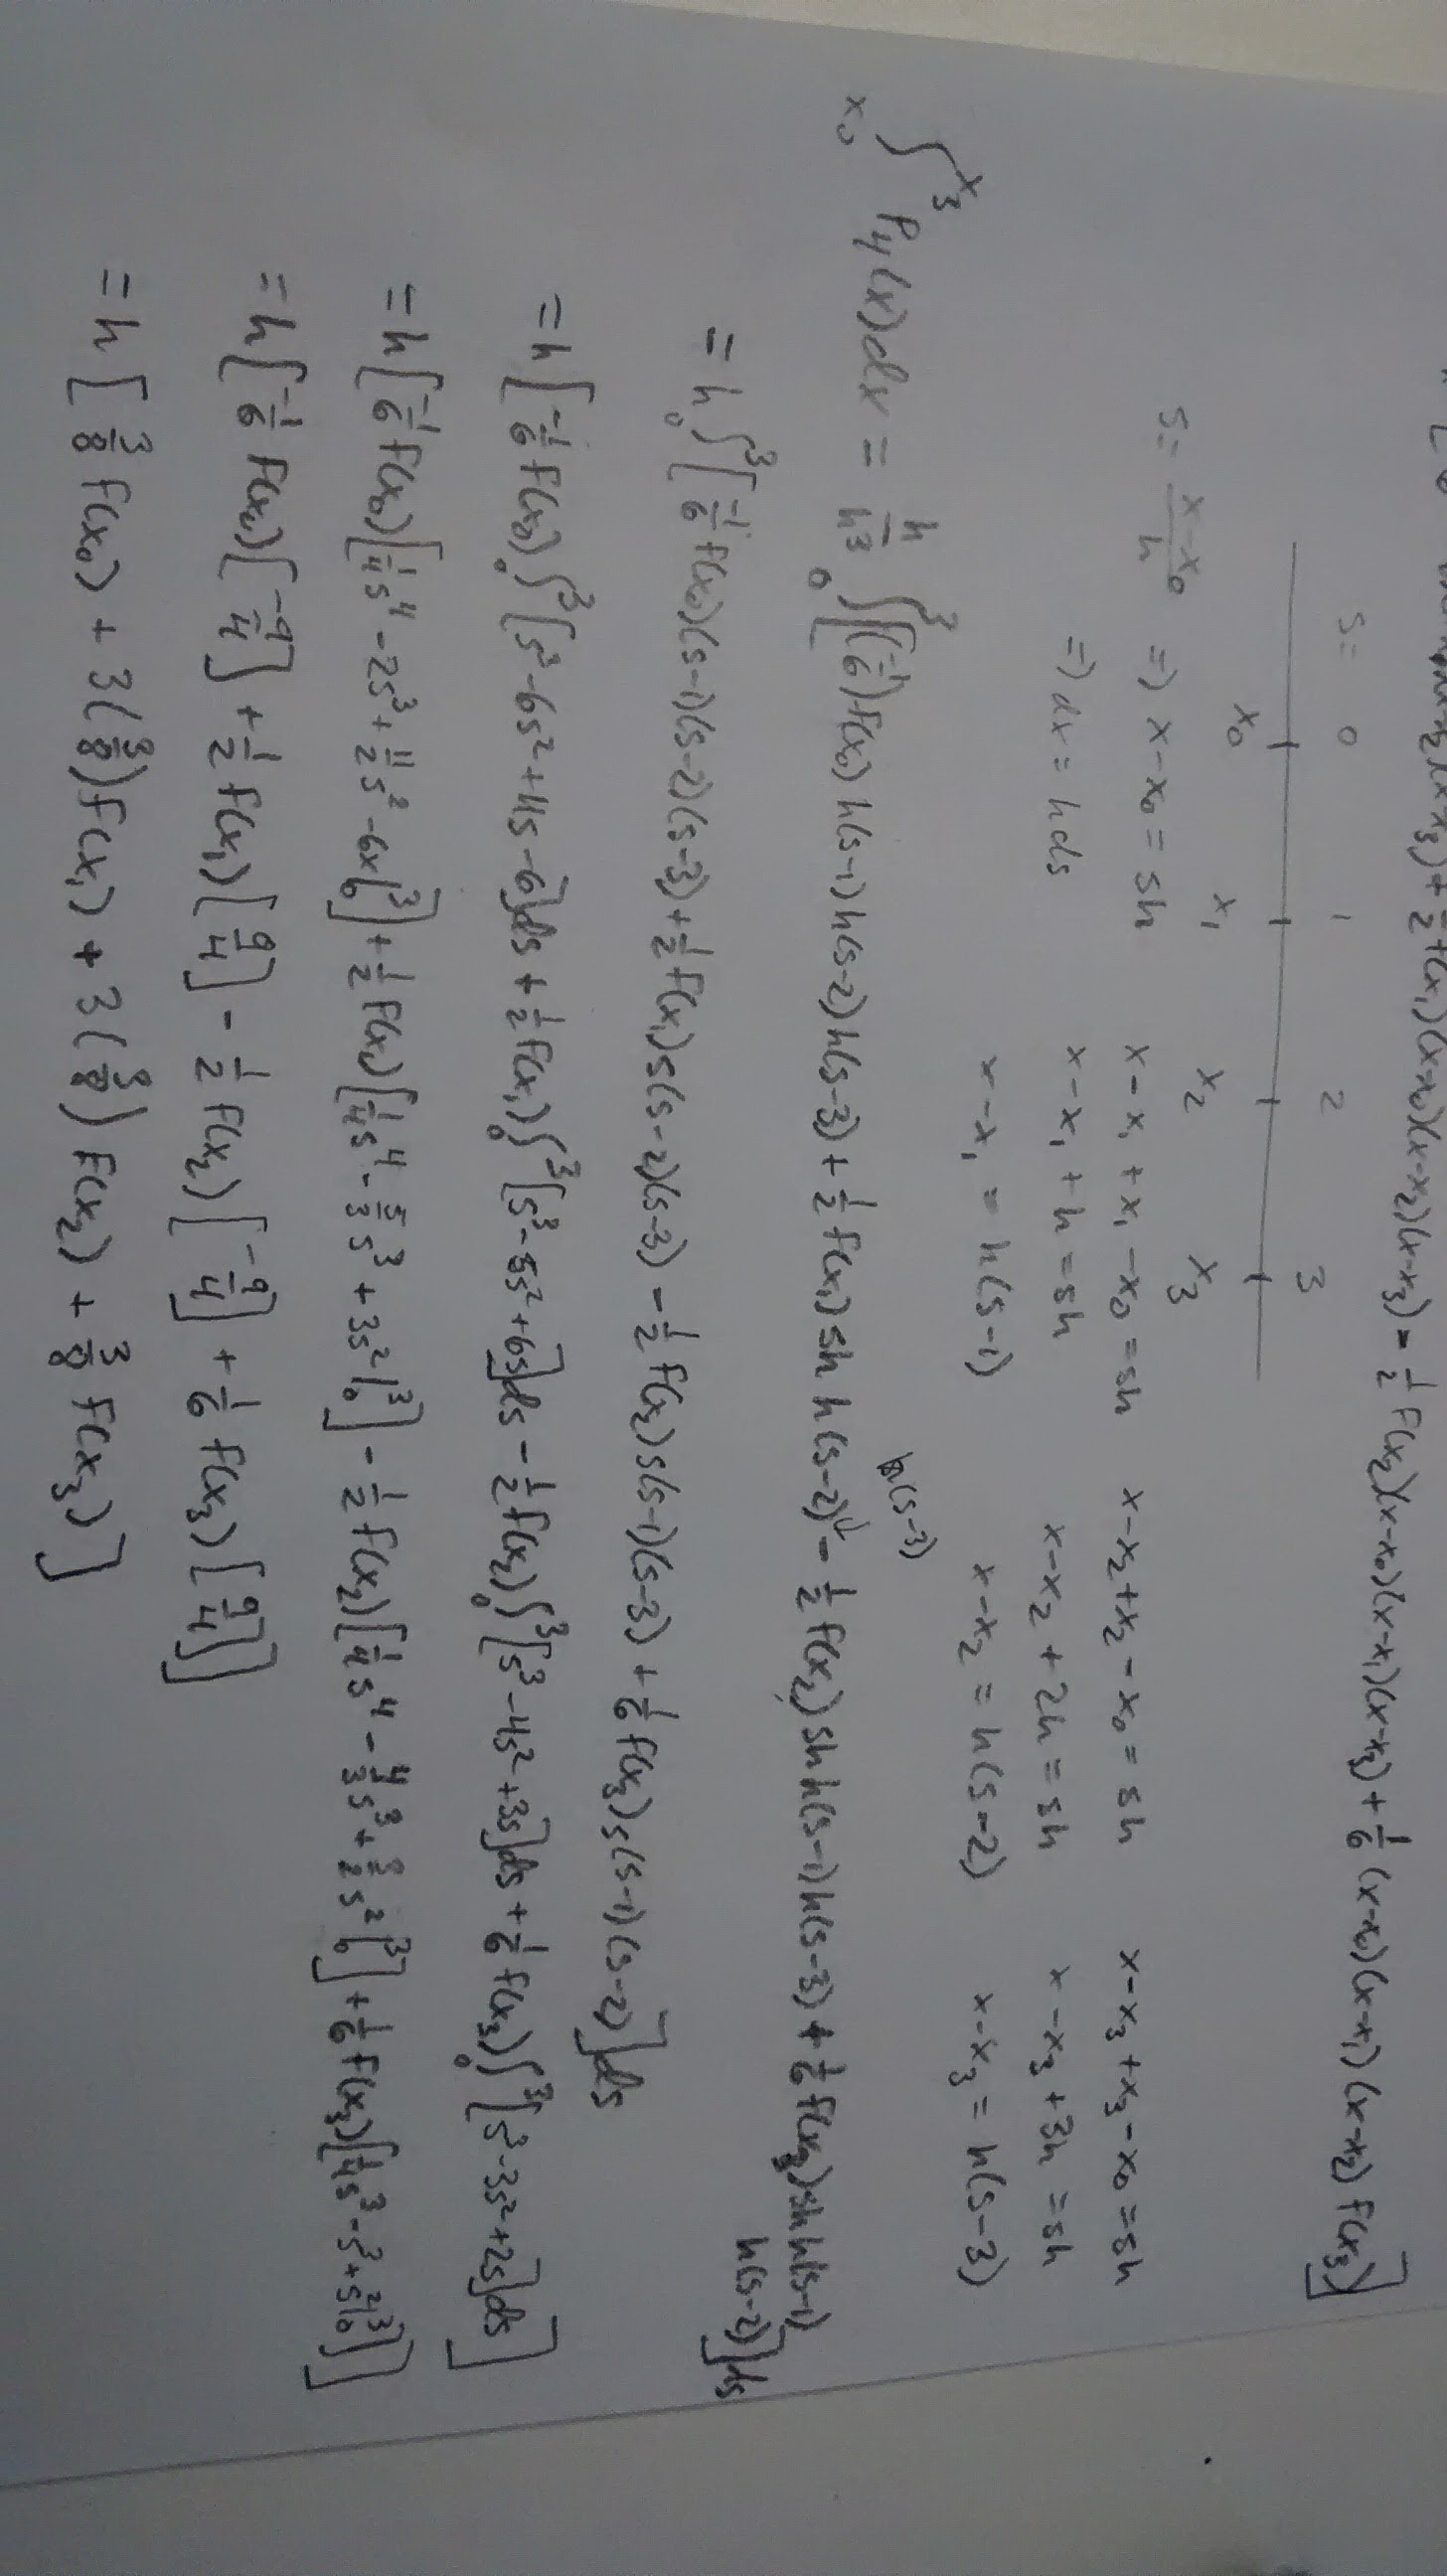 (x-x₂)(x-x₃) + ½ f(x₁)(x-x₀)(x-x₂)(x-x₃) - ½ f(x₂)(x-x₀)(x-x₁)(x-x₃) + 1/6 (x-x₀)(x-x₁)(x-x₂) f(x₃)]
s= 0 1 2 3
x₀ x₁ x₂ x₃
s = (x-x₀)/h ⇒ x-x₀ = sh x-x₁+x₁-x₀ = sh x-x₂+x₂-x₀ = sh x-x₃+x₃-x₀ = sh
⇒ dx = h ds x-x₁+h = sh x-x₂+2h = sh x-x₃+3h = sh
x-x₁ = h(s-1) x-x₂ = h(s-2) x-x₃ = h(s-3)
∫_{x₀}^{x₃} P₄(x)dx = h/h³ ∫₀³ [(-1/6) f(x₀) h(s-1) h(s-2) h(s-3) + ½ f(x₁) sh h(s-2) h(s-3) - ½ f(x₂) sh h(s-1) h(s-3) + 1/6 f(x₃) sh h(s-1) h(s-2)] ds
= h ∫₀³ [-1/6 f(x₀)(s-1)(s-2)(s-3) + ½ f(x₁) s(s-2)(s-3) - ½ f(x₂) s(s-1)(s-3) + 1/6 f(x₃) s(s-1)(s-2)] ds
= h [-1/6 f(x₀) ∫₀³ [s³-6s²+11s-6]ds + ½ f(x₁) ∫₀³ [s³-5s²+6s]ds - ½ f(x₂) ∫₀³ [s³-4s²+3s]ds + 1/6 f(x₃) ∫₀³ [s³-3s²+2s]ds]
= h [-1/6 f(x₀) [¼s⁴ - 2s³ + 11/2 s² - 6x|₀³] + ½ f(x₁) [¼s⁴ - 5/3 s³ + 3s²|₀³] - ½ f(x₂) [¼s⁴ - 4/3 s³ + 3/2 s²|₀³] + 1/6 f(x₃) [¼s³ - s³ + s²|₀³]]
= h [-1/6 f(x₀) [-9/4] + ½ f(x₁) [9/4] - ½ f(x₂) [-9/4] + 1/6 f(x₃) [9/4]]
= h [3/8 f(x₀) + 3(3/8) f(x₁) + 3(3/8) f(x₂) + 3/8 f(x₃)]